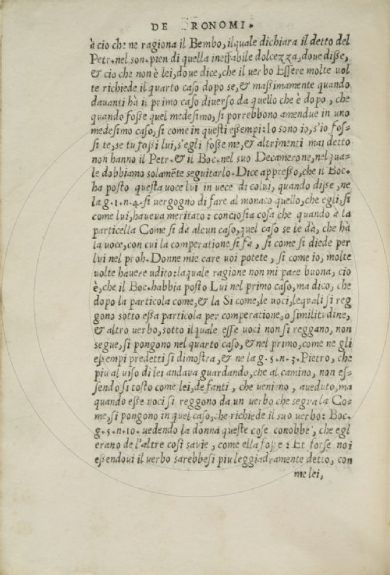 DE PRONOMI.
è cio che ne ragiona il Bembo, il quale dichiara il detto del
Petr. nel son. pien di quella ineffabile dolcezza, doue disse,
& cio che non è lei, doue dice, che il uerbo Essere molte uol
te richiede il quarto caso dopo se, & maßimamente quando
dauanti hà il primo caso diuerso da quello che è dopo, che
quando fosse quel medesimo, si porrebbono amendue in uno
medesimo caso, si come in questi essempi: Io sono io, s'io fos-
si te, se tu fossi lui, s'egli fosse me, & altrimenti mai detto
non hanno il Petr. & il Boc. nel suo Decamerone, nel qua-
le dobbiamo solamēte seguitarlo. Dice appresso, che il Boc.
ha posto questa uoce lui in uece di colui, quando disse, ne
la g. 1. n. 4. si uergogno di fare al monaco quello, che egli, si
come lui, haueua meritato: conciosia cosa che quando à la
particella Come si da alcun caso, quel caso se le dà, che hà
la uoce, con cui la comperatione si fà, si come si diede per
lui nel proh. Donne mie care uoi potete, si come io, molte
uolte hauere udito: laquale ragione non mi pare buona, cio
è, che il Boc. habbia posto Lui nel primo caso, ma dico, che
dopo la particola come, & la Si come, le uoci, lequali si reg
gono sotto essa particola per comperatione, o similitudine,
& altro uerbo, sotto il quale esse uoci non si reggano, non
segue, si pongono nel quarto caso, & nel primo, come ne gli
essempi predetti si dimostra, & ne la g. 5. n. 7. Pietro, che
piu al uiso di lei andaua guardando, che al camino, non es-
sendo si tosto come lei, de fanti, che uenino, aueduto, ma
quando esse uoci si reggono da un uerbo che segua la Co-
me, si pongono in quel caso, che richiede il suo uerbo: Boc.
g. 5. n. 10. uedendo la donna queste cose conobbe, che egl
erano de l'altre cosi sauie, come ella fosse: Et forse noi
essendoui il uerbo sarebbesi piu leggiadramente detto, con
me lei,